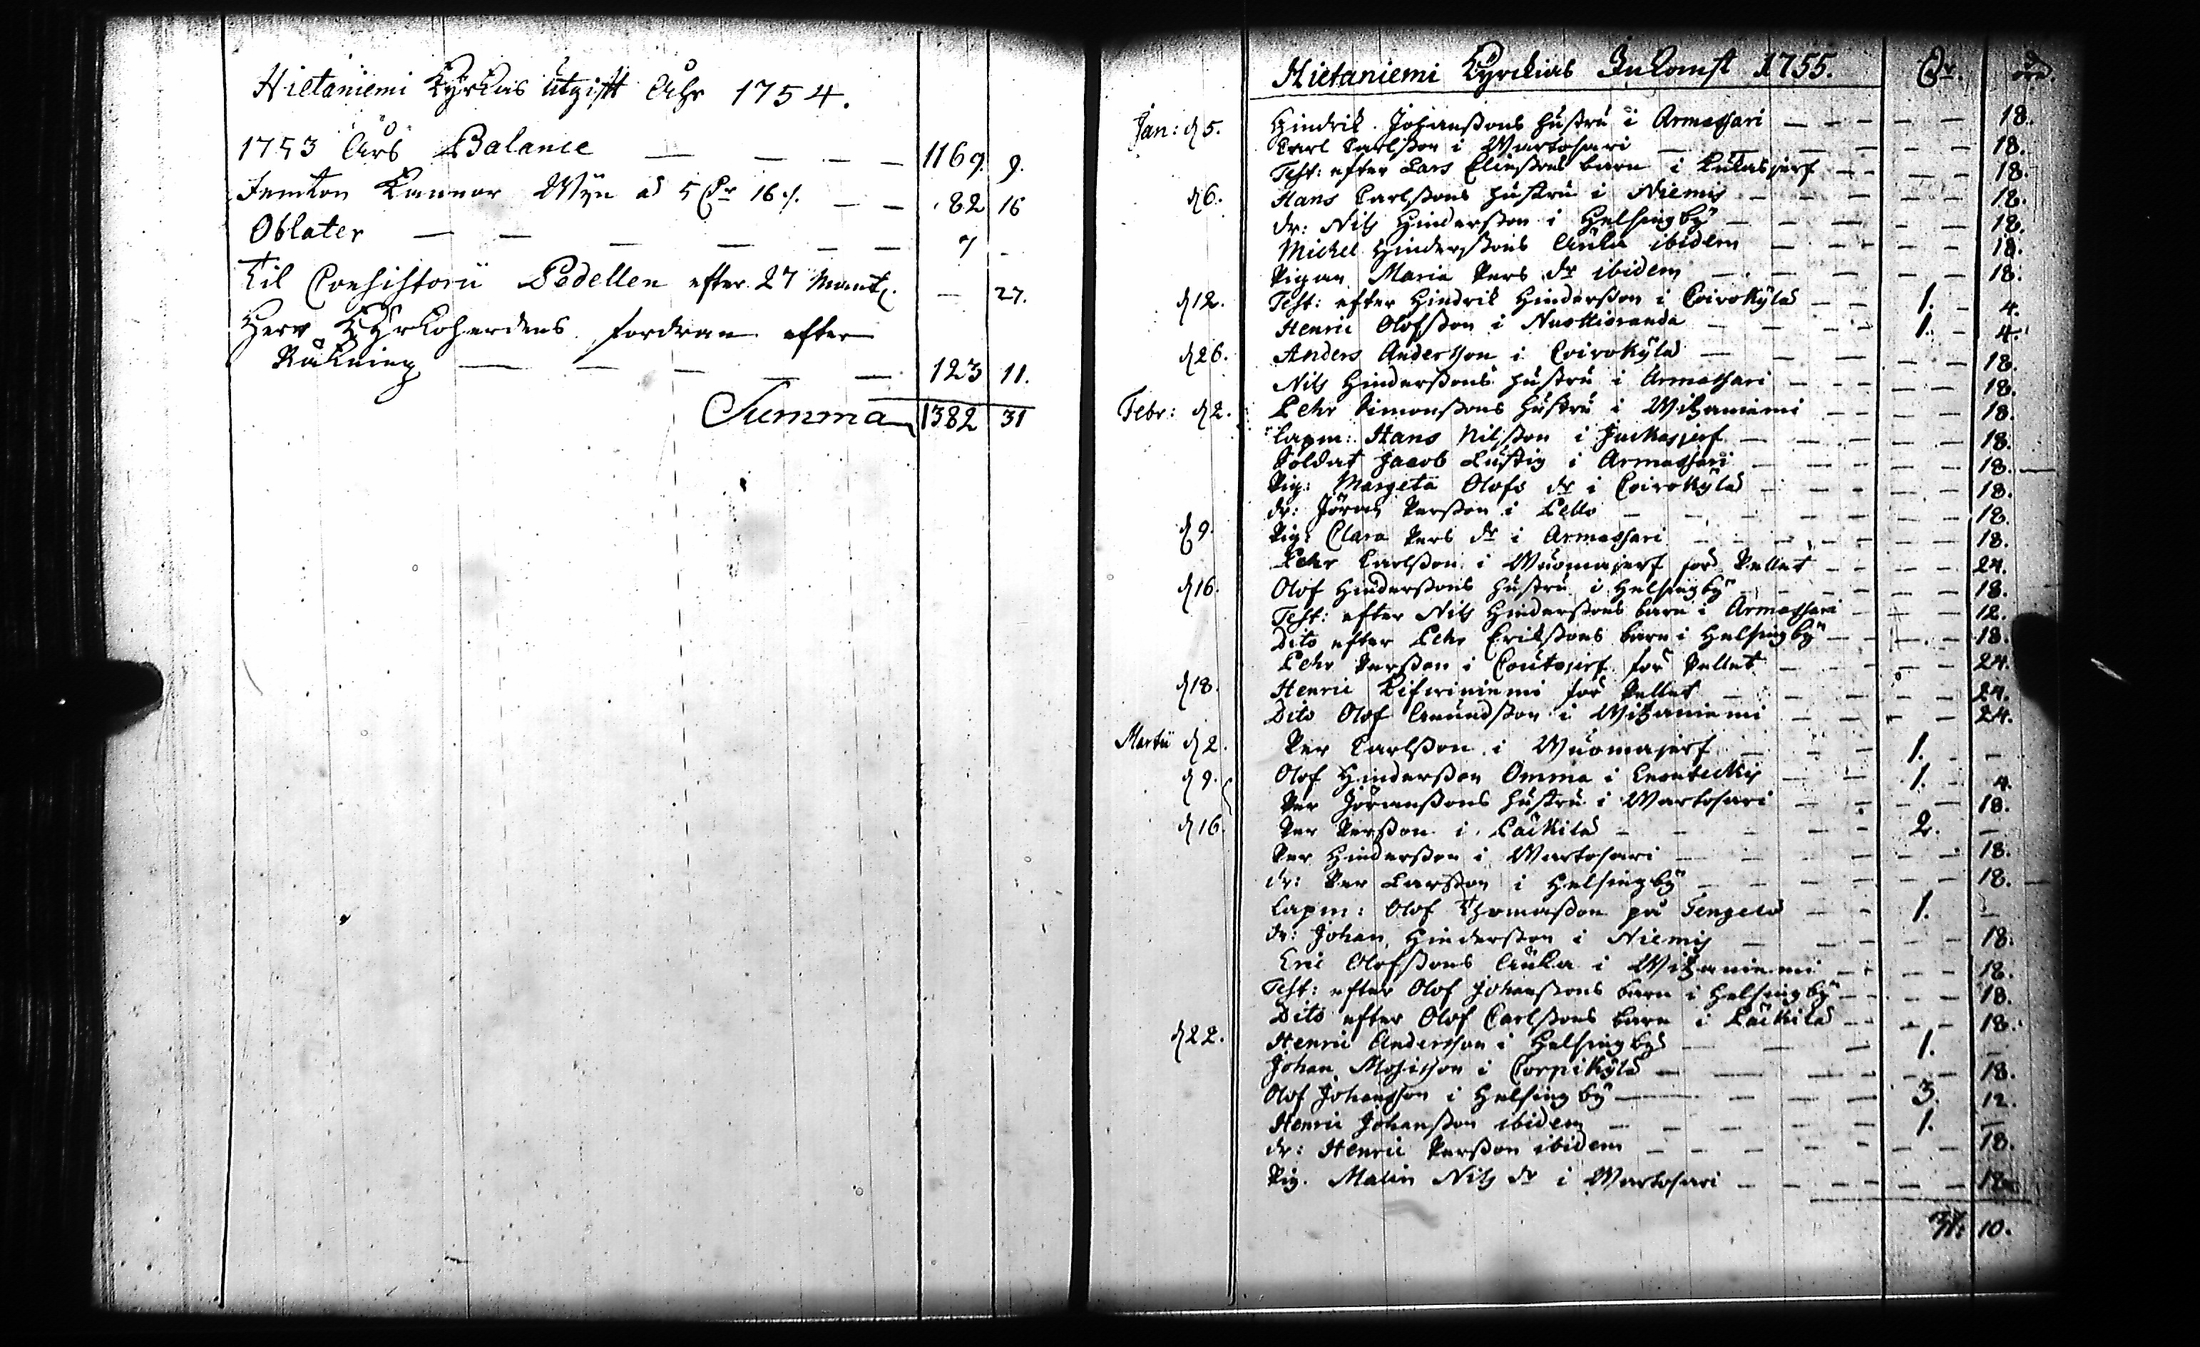 Hietaniemi Kyrkias Utgift Åhr 1754.
1753 Års Balance — — — — 1169. 9.
Femton Kannor Wijn ad 5 Dr 16 /. — — 82 16
Oblater — — — — — — 7 -
Til Consistorii Pedellen efter 27 Mant. — 27.
Herr Kyrkoherdens fordran efter
Räkning — — — — — 123 11.
Summa 1382 31
Hietaniemi Kyrckias Inkomst 1755. Dr. öre.
Jan: d 5. Hindrik Johanssons hustru i Armassari — — — 18.
Carl Carlsson i Martosari — — — 18.
Test: efter Lars Eliessons barn i — — 18.
d 6. Hans Carlssons hustru i Niemis — — — 18.
dr: Nils Hindersson i Helsingby — — — 18.
Michel Hinderssons Änka ibidem — — — 18.
Pigan Maria Pers dr ibidem — — — 18.
d 12. Test: efter Hindrik Hindersson i Coirokylä — — 1. 4.
Henric Olofsson i Nuottioranda — — 1. 4.
d 26. Anders Andersson i Coirokylä — — — 18.
Nils Hinderssons hustru i Armassari — — — 18.
Febr: d 2. Pehr Simonssons hustru i Witzaniemi — — — 18.
Lapm: Hans Nilsson i Juckasjerf — — — 18.
Soldat Jacob Lustig i Armassari — — — 18.
Pig: Margeta Olofs dr i Coirokylä — — — 18.
dr: Jöran Persson i Pello — — — 18.
d 9. Pig: Clara Pers dr i Armassari — — — 18.
Pehr Carlsson i Wuomajerf för Pellet — — — 24.
d 16. Olof Hinderssons hustru i Helsingby — — — 18.
Test: efter Nils Hinderssons barn i Armassari — — 12.
Dito efter Pehr Erikssons barn i Helsingby — — — 18.
Pehr Persson i Coutojerf för Pellet — — — 24.
d 18. Henric Kifiriniemi för Pellet — — — 24.
Dito Olof Amundsson i Witzaniemi — — — 24.
Martii d 2. Per Carlsson i Wuomajerf — — 1. -
d 9. Olof Hindersson Omma i Enonteckis — — 1. 4.
Per Jöranssons hustru i Martosari — — — 18.
d 16. Per Persson i Päckilä — — — 2. —
Per Hindersson i Martosari — — — 18.
dr: Per Larsson i Helsingby — — — 18.
Lapm: Olof Thomasson på Tengelä — — 1. —
dr: Johan Hindersson i Niemis — — — 18.
Eric Olofssons Änka i Witzaniemi — — — 18.
Test: efter Olof Johanssons barn i Helsingby — — — 18.
Dito efter Olof Carlssons barn i Päckilä — — — 18.
d 22. Henric Andersson i Helsingby — — 1. —
Johan Mosisson i Corpikylä — — — 18.
Olof Johansson i Helsingby — — — 3. 12.
Henric Johansson ibidem — — — 1. —
dr: Henric Persson ibidem — — — 18.
Pig. Malin Nils dr i Martosari — — — 18.
31: 10.